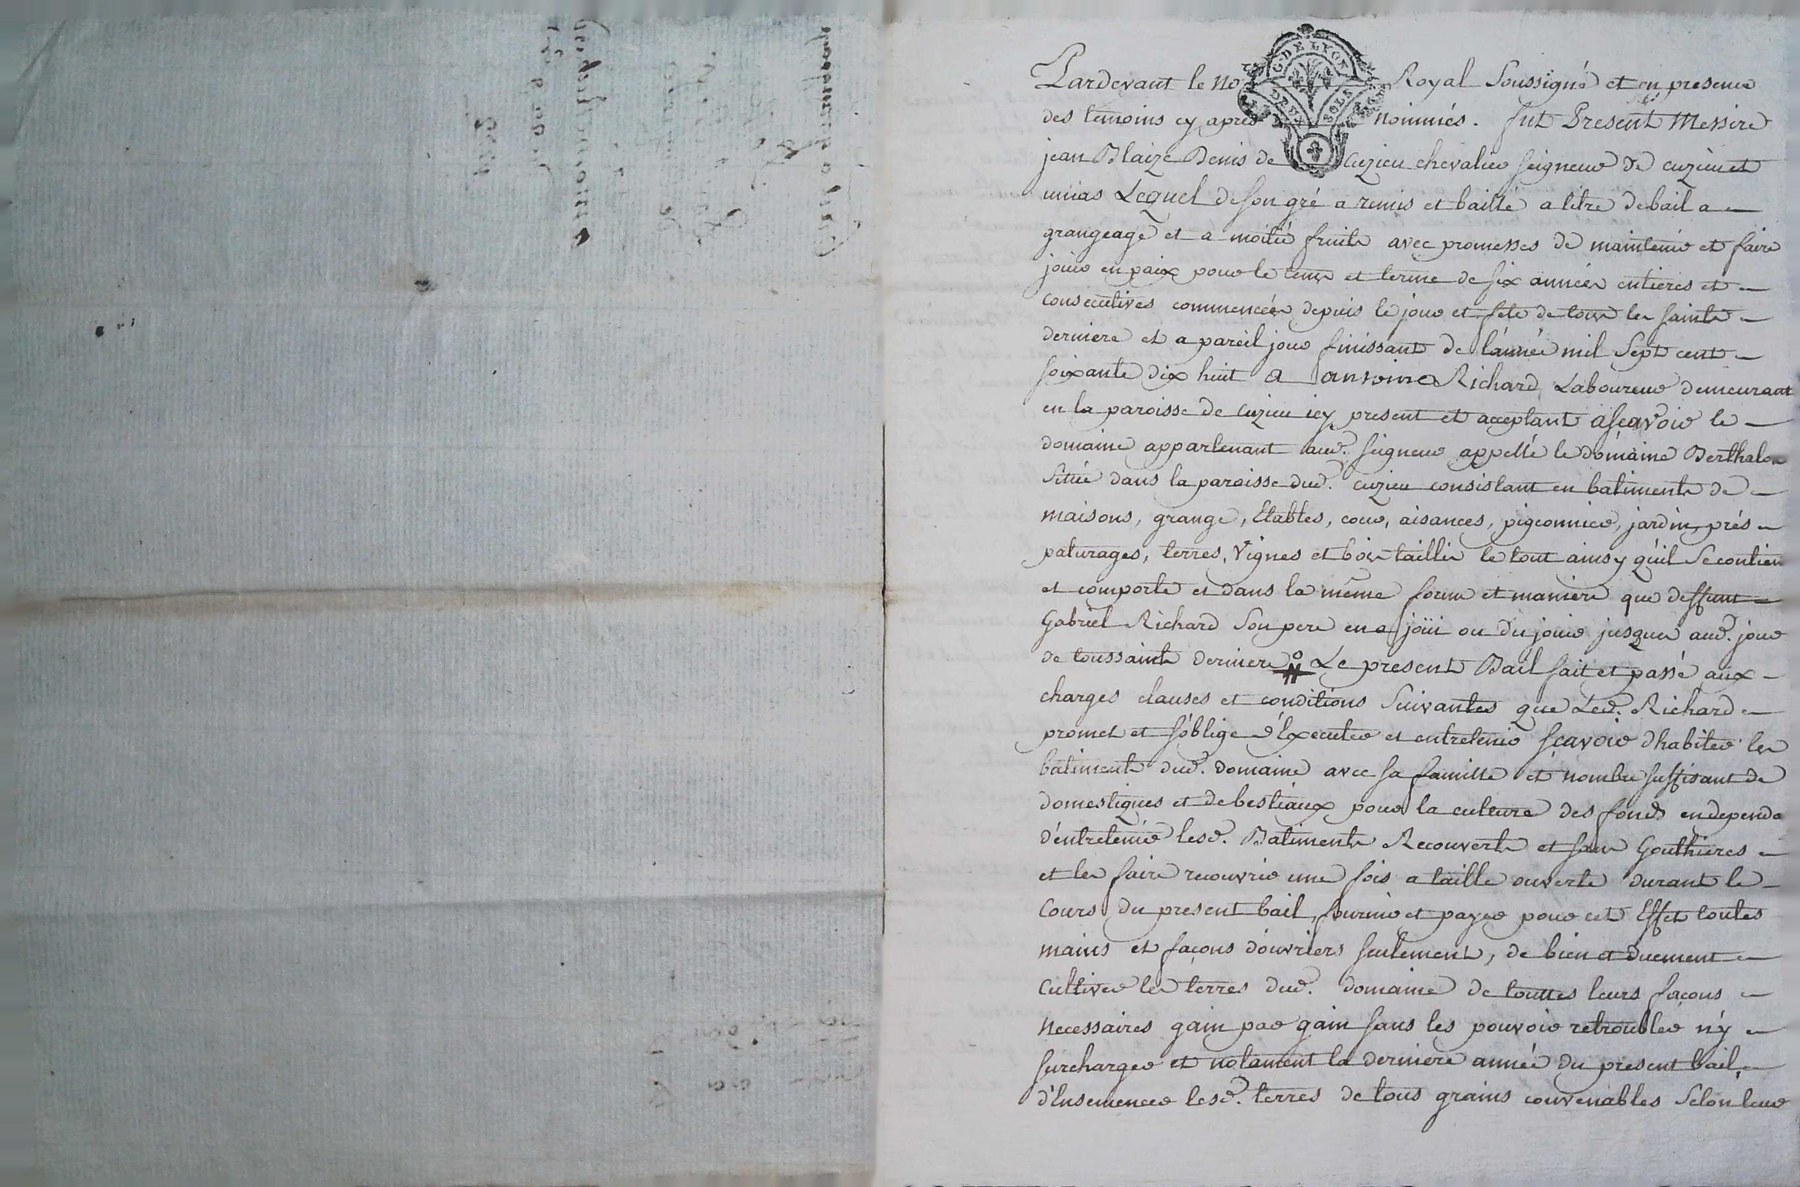 G. DE LYON
Pardevant le No Royal Soussigné et en presence
des temoins cy apres nommés. fut Present Messire
jean Blaize Denis de Cuzieu chevalier seigneur de cuzieu et
unias Lequel de son gré a remis et baillé a titre de bail a
grangeage et a moitié fruits avec promesses de maintenir et faire
jouir en paix pour le tems et terme de six années entieres et
consecutives commencées depuis le jour et fete de tous les saints
derniere et a pareil jour finissant de l'année mil sept cent
soixante dix huit a antoine Richard Laboureur demeurant
en la paroisse de Cuzieu icy present et acceptant ascavoir le
domaine appartenant aud. seigneur appellé le domaine Berthalon
situé dans la paroisse dud. cuzieu consistant en batiments de
maisons, grange, Etables, cour, aisances, pigeonnier, jardin, prés
paturages, terres, vignes et bois taillis le tout ainsy qu'il se contien
et comporte et dans la même forme et maniere que deffunt
Gabriel Richard son pere en a joüi ou du jouir jusques aud. jour
de toussaints derniere Le present Bail fait et passé aux
charges clauses et conditions suivantes que Led. Richard
promet et s'oblige d'Executer et entretenir scavoir d'habiter les
batiments dud. domaine avec sa famille et nombre suffisant de
domestiques et de bestiaux pour la culture des fonds en dependa
d'entretenir lesd. Batiments Recouverts et sans Gouthieres
et les faire recouvrir une fois a taille ouverte durant le
Cours du present bail, fournir et payer pour cet Effet toutes
mains et façons d'ouvriers seulement, de bien et duement
Cultiver les terres dud. domaine de touttes leurs façons
necessaires gain par gain sans les pouvoir retroubler n'y
surcharger et notament la derniere année du present bail,
d'Ensemencer lesd. terres de tous grains convenables selon leur